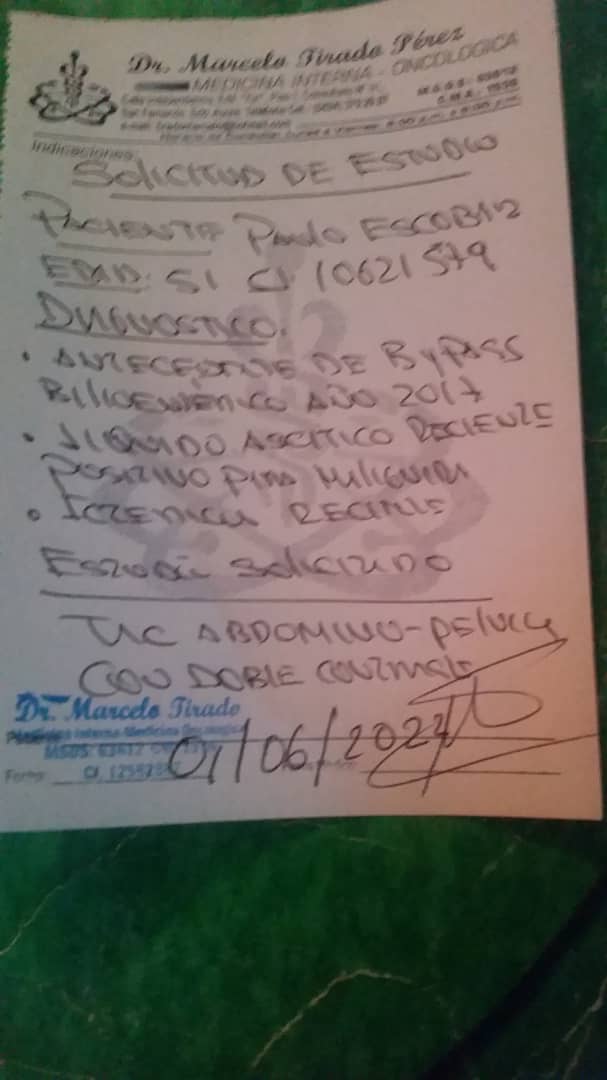 Dr. Marcelo Tirado Pérez
MEDICINA INTERNA - ONCOLOGICA
Indicaciones
SOLICITUD DE ESTUDIO
PACIENTE Paulo ESCOBAR
EDAD: 51 CI 10621579
DIAGNOSTICO.
• ANTECEDENTE DE BYPASS
BILIOENTERICO AÑO 2017
• LIQUIDO ASCITICO RECIENTE
POSITIVO PARA MALIGNIDAD
• ICTERICIA RECIENTE
ESTUDIO SOLICITADO
TAC ABDOMINO-PELVICA
CON DOBLE CONTRASTE
Dr. Marcelo Tirado
Medicina Interna-Medicina
MSDS: 63612
Fecha
01/06/2022